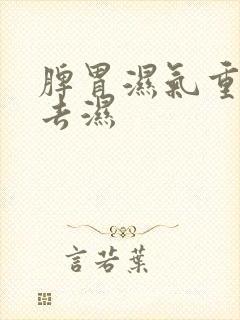 脾胃濕氣重
去濕
言若葉